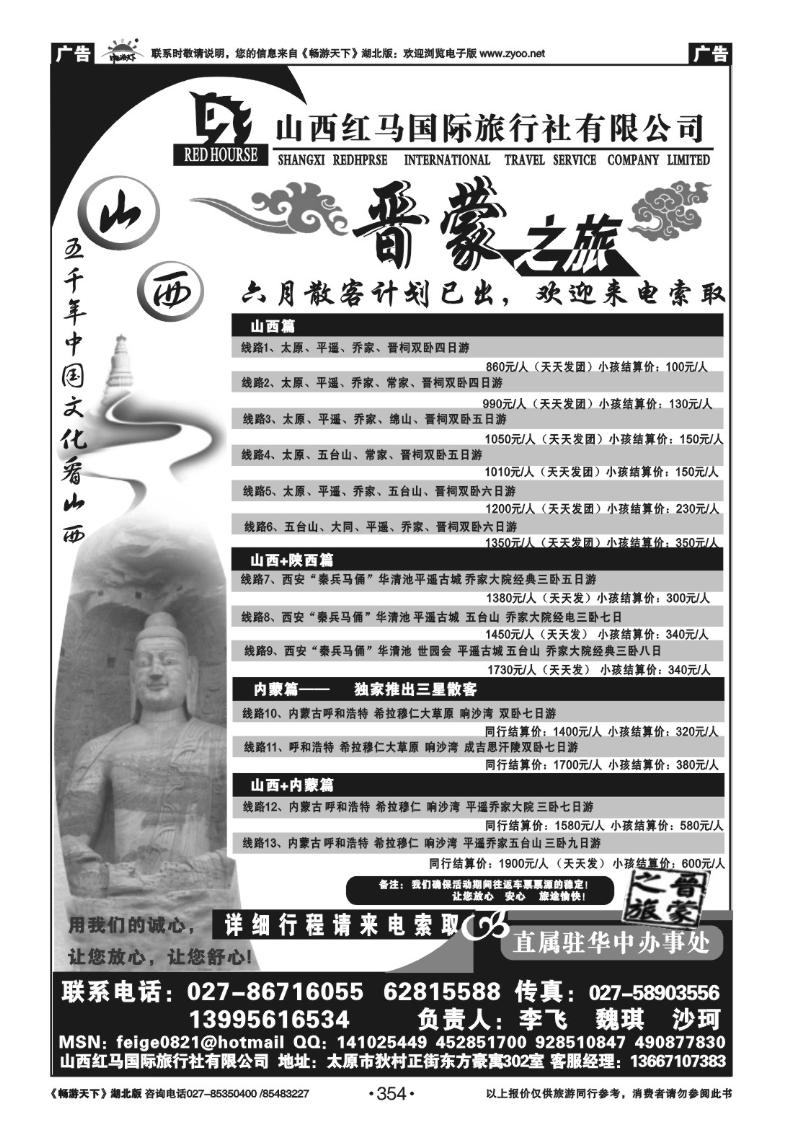 广告
畅游天下
联系时敬请说明，您的信息来自《畅游天下》湖北版：欢迎浏览电子版 www.zyoo.net
广告
RED HOURSE
山西红马国际旅行社有限公司
SHANGXI REDHPRSE INTERNATIONAL TRAVEL SERVICE COMPANY LIMITED
山西
五千年中国文化看山西
晋蒙之旅
六月散客计划已出，欢迎来电索取
山西篇
线路1、太原、平遥、乔家、晋祠双卧四日游
860元/人（天天发团）小孩结算价：100元/人
线路2、太原、平遥、乔家、常家、晋祠双卧四日游
990元/人（天天发团）小孩结算价：130元/人
线路3、太原、平遥、乔家、绵山、晋祠双卧五日游
1050元/人（天天发团）小孩结算价：150元/人
线路4、太原、五台山、常家、晋祠双卧五日游
1010元/人（天天发团）小孩结算价：150元/人
线路5、太原、平遥、乔家、五台山、晋祠双卧六日游
1200元/人（天天发团）小孩结算价：230元/人
线路6、五台山、大同、平遥、乔家、晋祠双卧六日游
1350元/人（天天发团）小孩结算价：350元/人
山西+陕西篇
线路7、西安“秦兵马俑”华清池平遥古城 乔家大院经典三卧五日游
1380元/人（天天发）小孩结算价：300元/人
线路8、西安“秦兵马俑”华清池 平遥古城 五台山 乔家大院经电三卧七日
1450元/人（天天发） 小孩结算价：340元/人
线路9、西安“秦兵马俑”华清池 世园会 平遥古城 五台山 乔家大院经典三卧八日
1730元/人（天天发） 小孩结算价：340元/人
内蒙篇—— 独家推出三星散客
线路10、内蒙古呼和浩特 希拉穆仁大草原 响沙湾 双卧七日游
同行结算价：1400元/人 小孩结算价：320元/人
线路11、呼和浩特 希拉穆仁大草原 响沙湾 成吉思汗陵双卧七日游
同行结算价：1700元/人 小孩结算价：380元/人
山西+内蒙篇
线路12、内蒙古 呼和浩特 希拉穆仁 响沙湾 平遥乔家大院 三卧七日游
同行结算价：1580元/人 小孩结算价：580元/人
线路13、内蒙古 呼和浩特 希拉穆仁 响沙湾 平遥乔家五台山 三卧九日游
同行结算价：1900元/人 （天天发） 小孩结算价：600元/人
备注：我们确保活动期间往返车票票源的稳定！
让您放心 安心 旅途愉快！
晋蒙之旅
用我们的诚心，
让您放心，让您舒心！
详细行程请来电索取
直属驻华中办事处
联系电话：027-86716055 62815588 传真：027-58903556
13995616534 负责人：李飞 魏琪 沙珂
MSN：feige0821@hotmail QQ：141025449 452851700 928510847 490877830
山西红马国际旅行社有限公司 地址：太原市狄村正街东方豪寓302室 客服经理：13667107383
《畅游天下》湖北版 咨询电话027-85350400 /85483227
·354·
以上报价仅供旅游同行参考，消费者请勿参阅此书